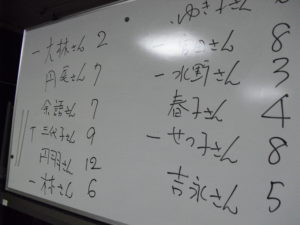 一大林さん 2
円尾さん 7
余語さん 7
T 三代子さん 9
円羽さん 12
一林さん 6
ゆき子さん
さん 8
一水野さん 3
春子さん 4
一せつ子さん 8
吉永さん 5